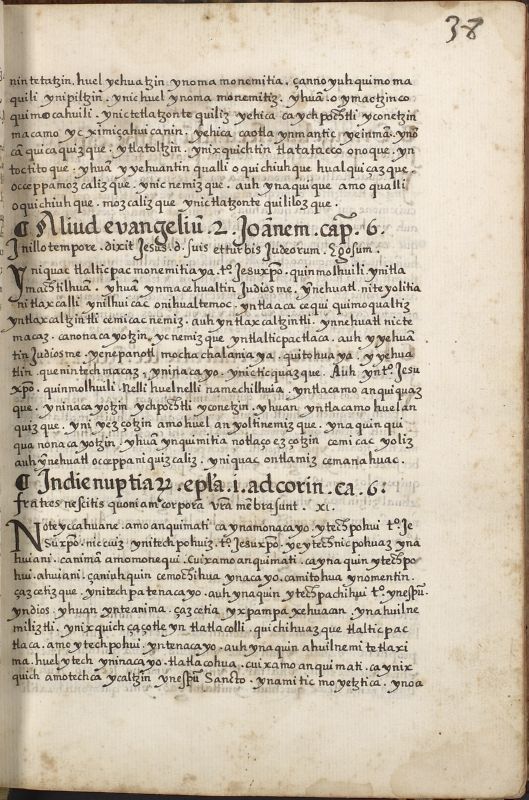 38
nintetatzin. huel yehuatzin ynoma monemitia. çanno yuh quimo ma
quili ynipiltzin. ynic huel ynoma monemitiz. yhuā. o ymactzinco
quimocahuili. ynic tetlatzontequiliz yehica ca ychpōchtli yconetzin
macamo yc ximiçahuican in. yehica ca otla ynmantic yeinmā. yno
cā quicaquizque. ytlatoltzin. ynixquichtin tlatatacco onoque. yn
toctitoque. yhuā yyehuantin qualli oquichiuhque hualquiçazque.
occeppa mozcalizque. ynic nemizque. auh ynaquique amo qualli
oquichiuhque. mozcalizque ynic tlatzontequililozque.
¶ Aliud evangeliū. 2. Joānem. cap. 6.
In illo tempore. dixit Jesus. d. suis et turbis Judeorum. Ego sum.
Yniquac tlalticpac monemitiaya. tº. Jesu xpō. quinmolhuili. ynitla
machtilhuā. yhuā ynmacehualtin Judiosme. ynnehuatl niteyolitia
nitlaxcalli ynilhuicac onihualtemoc. yntla aca cequi quimoqualtiz
yntlaxcaltzintli cemicac nemiz. auh yntlaxcaltzintli. ynnehuatl nicte
macaz. ca nonacayotzin. yc nemizque yntlalticpactlaca. auh yyehuā
tin Judiosme. yc nepanotl mochachalaniaya. quitohuaya. yyehua
tlin. quenin techmacaz, yninacayo. ynictiquazque. Auh yn tº. Jesu
xpō. quinmolhuili. Nelli huel nelli namechilhuia. yntlacamo anquiquaz
que. yninacayotzin ychpōchtli yconetzin. yhuan yntlacamo huel an
quizque. yni yezçotzin amo huel anyoltinemizque. ynaquin qui
qua nonacayotzin. yhuā ynquimitia notlaço ezçotzin cemicac yoliz
auh ynnehuatl occeppa niquizcaliz. yniquac ontlamiz cemanahuac.
¶ In die nuptiaꝝ. epla. 1. ad corin. ca. 6:
fratres nescitis quoniam corpora vrā mēbra sunt. xi.
Noteyccahuane. amo anquimati ca ynamonacayo ytechpohui tº. Je
Su xpō. nic cuiz ynitech pohuiz. tº. Jesu xpō. ye ytech nicpohuaz yna
huiani. ca nimā amo monequi. Cuix amo anquimati. ca ynaquin ytechpo
hui. ahuiani. çaniuhquin cemochihua ynacayo. ca mitohua ynomentin.
çazcetizque. ynitech patenacayo. auh ynaquin ytechpachihui tº. ynespū.
yndios. yhuan ynteanima. çazcetia. yxpampa xehuacan ynahuilne
miliztli. ynixquich çaçotle yn tlatlacolli. quichihuazque tlalticpac
tlaca. amo ytechpohui. yntenacayo. auh ynaquin ahuilnemi tetlaxi
ma. huel ytech yninacayo. tlatlacohua. cuix amo anquimati. ca ynix
quich amotechca ycaltzin ynespū Sancto. ynamitic moyetztica. ynoa